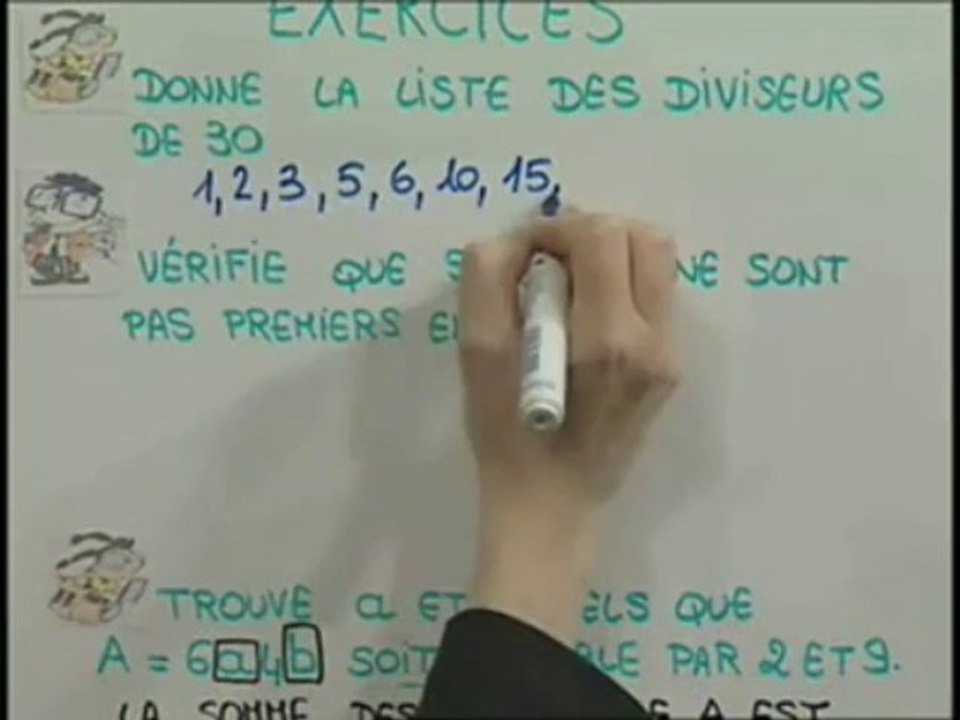 EXERCICES
DONNE LA LISTE DES DIVISEURS
DE 30
1, 2, 3, 5, 6, 10, 15,
VÉRIFIE QUE NE SONT
PAS PREMIERS
TROUVE a ET QUE
A = 6a4b SOIT PAR 2 ET 9.
LA SOMME DES A EST